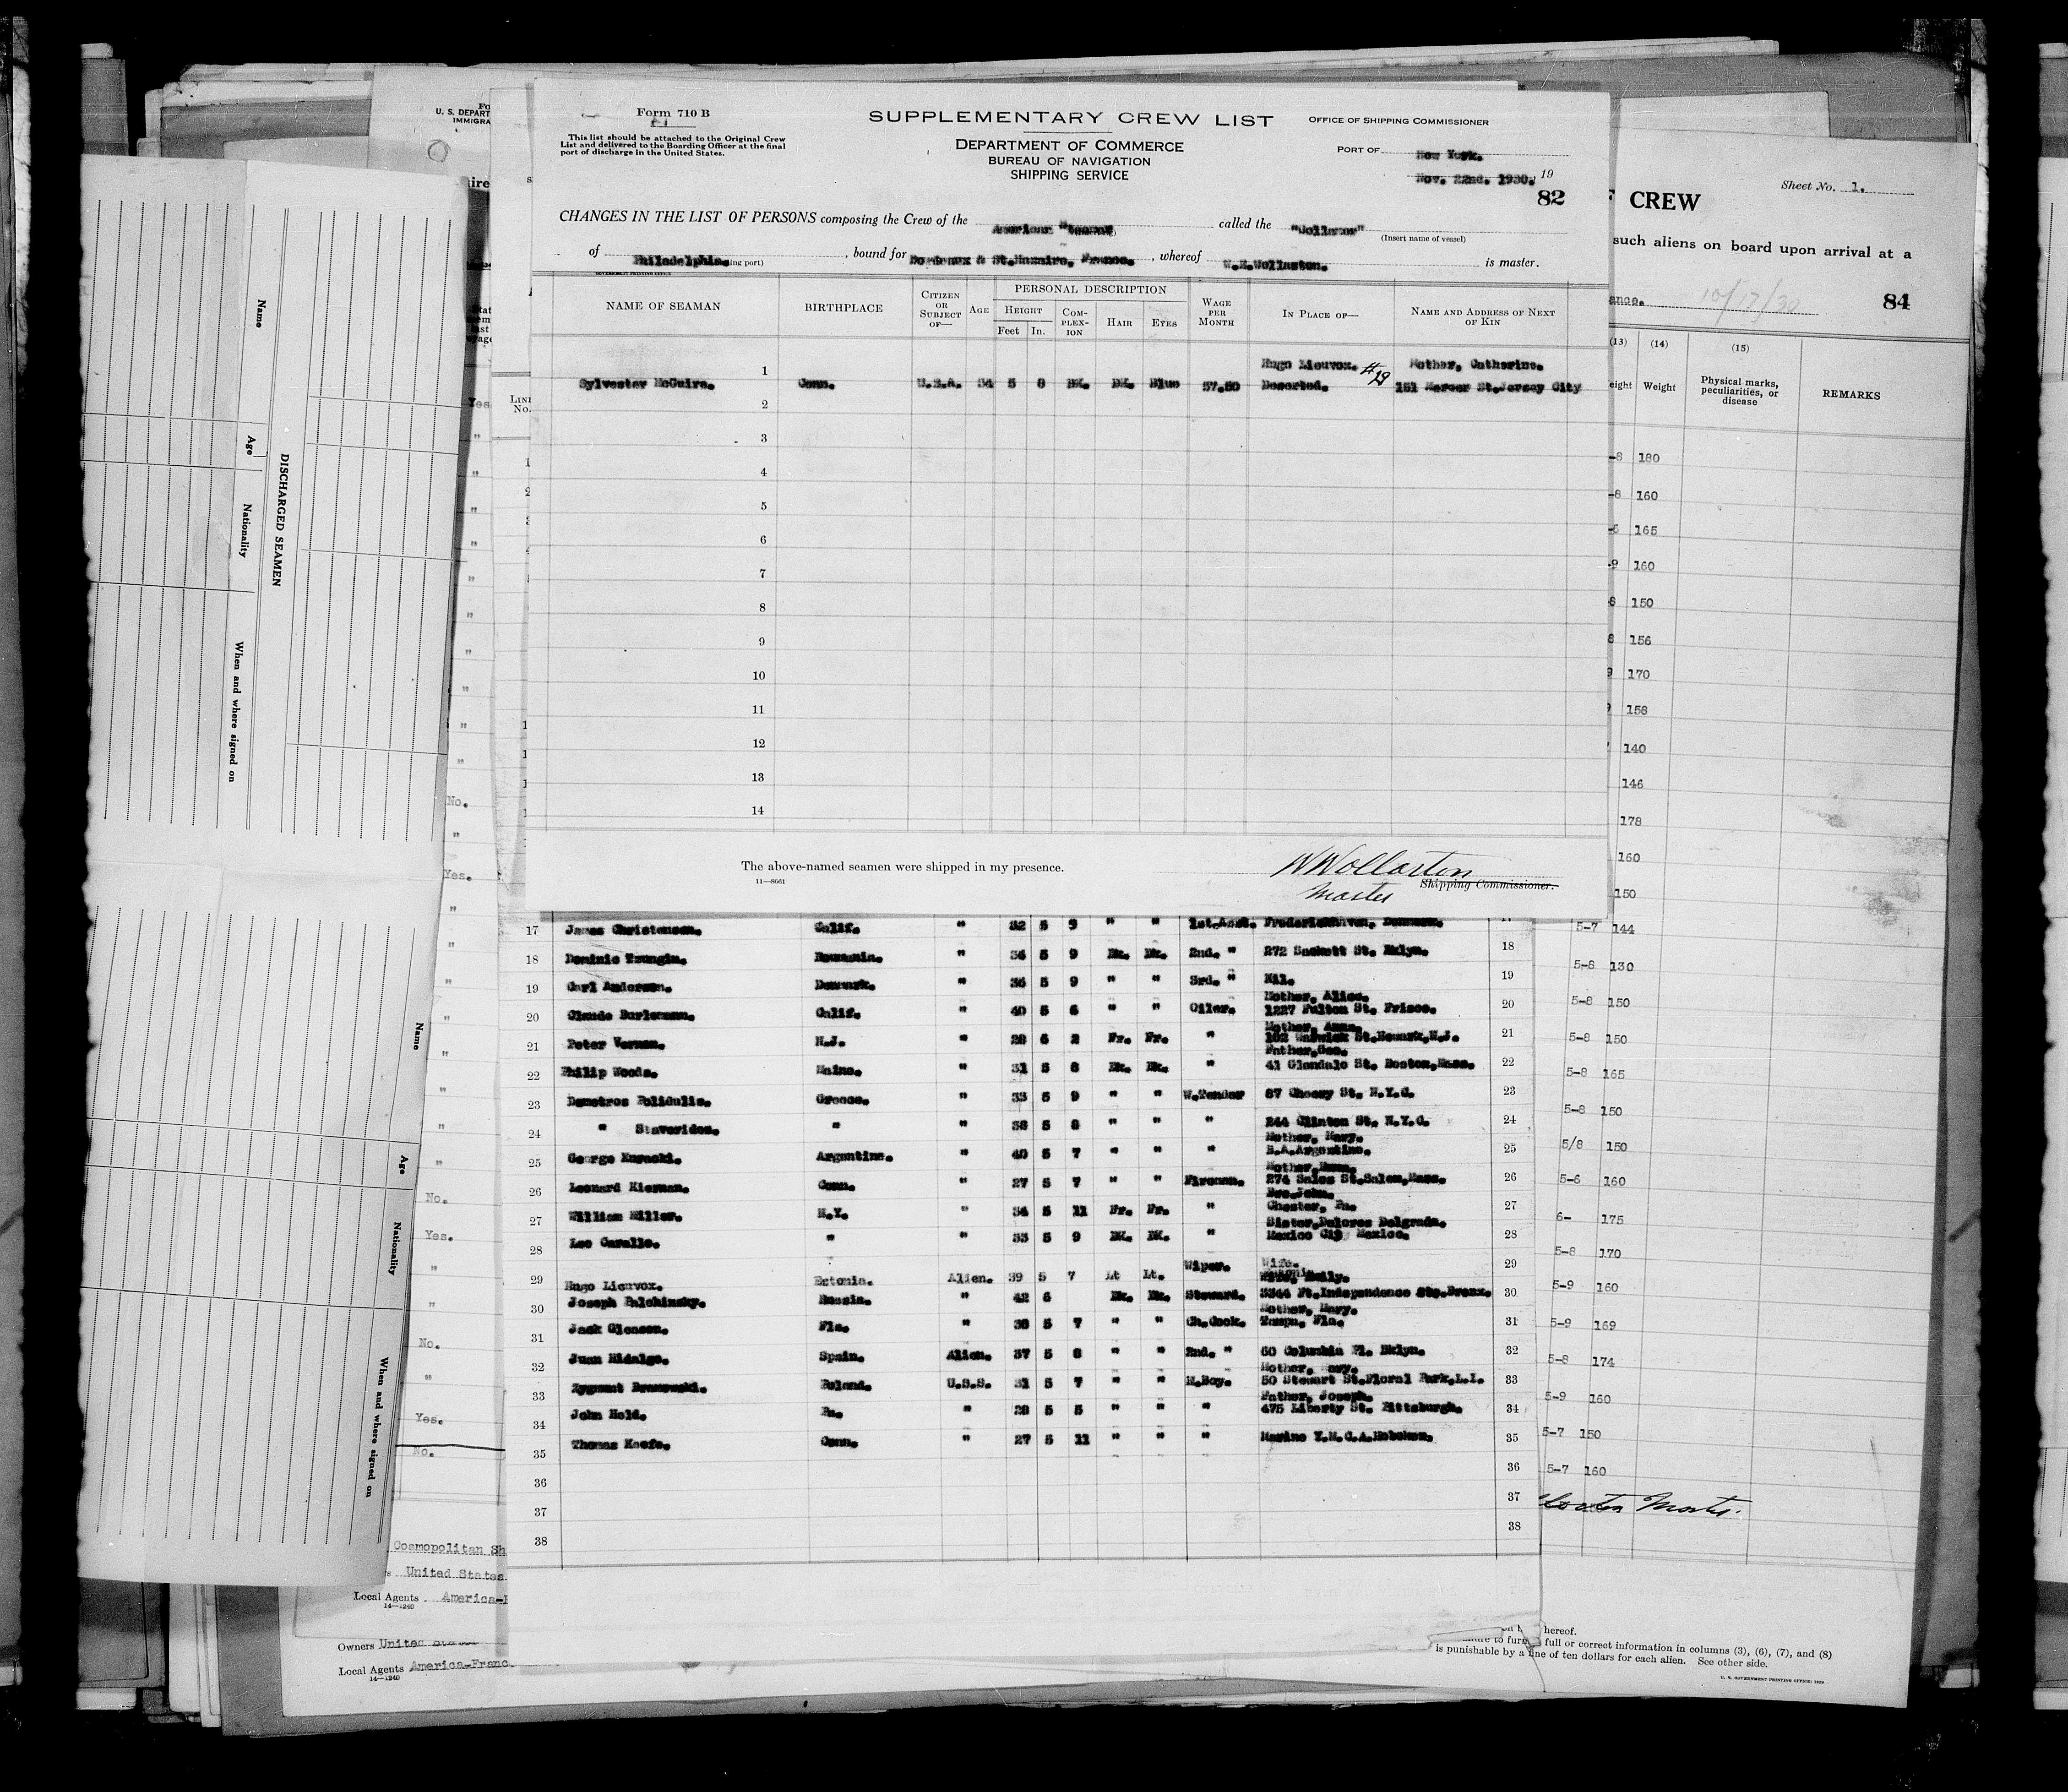 Form 710 B
This list should be attached to the Original Crew
List and delivered to the Boarding Officer at the final
port of discharge in the United States.
SUPPLEMENTARY CREW LIST
DEPARTMENT OF COMMERCE
BUREAU OF NAVIGATION
SHIPPING SERVICE
OFFICE OF SHIPPING COMMISSIONER
PORT OF New York.
Nov. 22nd. 1930. 19
82
CHANGES IN THE LIST OF PERSONS composing the Crew of the American called the
(Insert name of vessel)
of Philadelphia. , bound for Bordeaux & St.Nazaire, France. , whereof W.E.Wollaston. is master.
NAME OF SEAMAN BIRTHPLACE CITIZEN OR SUBJECT OF— AGE PERSONAL DESCRIPTION HEIGHT Feet In. COMPLEXION HAIR EYES WAGE PER MONTH IN PLACE OF— NAME AND ADDRESS OF NEXT OF KIN
1 Hugo Lieuvox. #29 Mother, Catherine.
Sylvester McGuire. Conn. U.S.A. 34 5 8 DK. DK. Blue 57.50 Deserted. 151 Mercer St.Jersey City
2
3
4
5
6
7
8
9
10
11
12
13
14
The above-named seamen were shipped in my presence.
11—8661
W Wollaston
Shipping Commissioner.
Master
17 James Christensen. Calif. " 32 5 9 " " 1st.Asst. Denmark.
18 Dominic Roumania. " 34 5 9 Dk. Dk. 2nd. " 272 Sackett St. Bklyn. 18
19 Carl Anderson. Denmark. " 36 5 9 " " 3rd. " Nil. 19
Mother, Alice.
20 Claude Calif. " 40 5 6 " " Oiler. 1227 Fulton St. Frisco. 20
Mother, Anna.
21 Peter Vernon. N.J. " 28 6 2 Fr. Fr. " 162 Warwick St.Newark,N.J. 21
Father,Geo.
22 Philip Woods. Maine. " 31 5 8 Dk. Dk. " 41 Glendale St. Boston,Mass. 22
23 Demetros Polidulis. Greece. " 33 5 9 " " W.Tender 87 St. N.Y.C. 23
24 " Staverides. " " 38 5 8 " " " 244 Clinton St. N.Y.C. 24
Mother, Mary.
25 George Argentine. " 40 5 7 " " " B.A.Argentine. 25
26 Leonard Kiernan. Conn. " 27 5 7 " " Fireman. 274 St.Salem,Mass. 26
Bro.John.
27 William Miller. N.Y. " 34 5 11 Fr. Fr. " Chester, Pa. 27
Sister,Dolores Delgrada.
28 Leo Caralle. " " 33 5 9 DK. DK. " Mexico City Mexico. 28
29 Hugo Lieuvox. Estonia. Alien. 39 5 7 Lt Lt. Wiper. Wife. 29
30 Joseph Palchinsky. Russia. " 42 6 Dk. Dk. Steward. 3344 Ft.Independence Bronx. 30
Mother, Mary.
31 Jack Gleason. Fla. " 38 5 7 " " Ch.Cook. Tampa, Fla. 31
32 Juan Hidalgo. Spain. Alien. 37 5 8 " " 2nd. " 60 Columbia Pl. Bklyn. 32
Mother, Mary.
33 Zygmunt Poland. U.S.S. 31 5 7 " " M.Boy. 50 Stewart St.Floral Park,L.I. 33
Father, Joseph.
34 John Hold. Pa. " 28 5 5 " " " 475 Liberty St. Pittsburgh. 34
35 Thomas Keefe. Conn. " 27 5 11 " " " Marine Y.M.C.A.Hoboken. 35
36 36
37 37
38 38
CREW
Sheet No. 1.
such aliens on board upon arrival at a
10/17/30
84
(13) (14) (15)
Weight
Physical marks,
peculiarities, or
disease
REMARKS
-8 180
-8 160
165
160
150
156
170
158
140
146
178
160
150
5-7 144
5-8 130
5-8 150
5-8 150
5-8 165
5-8 150
5/8 150
5-6 160
6- 175
5-8 170
5-9 160
5-9 169
5-8 174
5-9 160
5-7 150
5-7 160
Master.
hereof.
full or correct information in columns (3), (6), (7), and (8)
is punishable by a fine of ten dollars for each alien. See other side.
U. S. GOVERNMENT PRINTING OFFICE: 1929
U. S. DEPART
IMMIGRA
LINE
No.
DISCHARGED SEAMEN
Name
Age
Nationality
When and where signed on
Name
Age
Nationality
When and where signed on
No.
Yes.
No.
Yes.
No.
Yes.
No.
Cosmopolitan Sh
United States
Local Agents America-
14—1240
Owners United
Local Agents America-Franc
14—1240